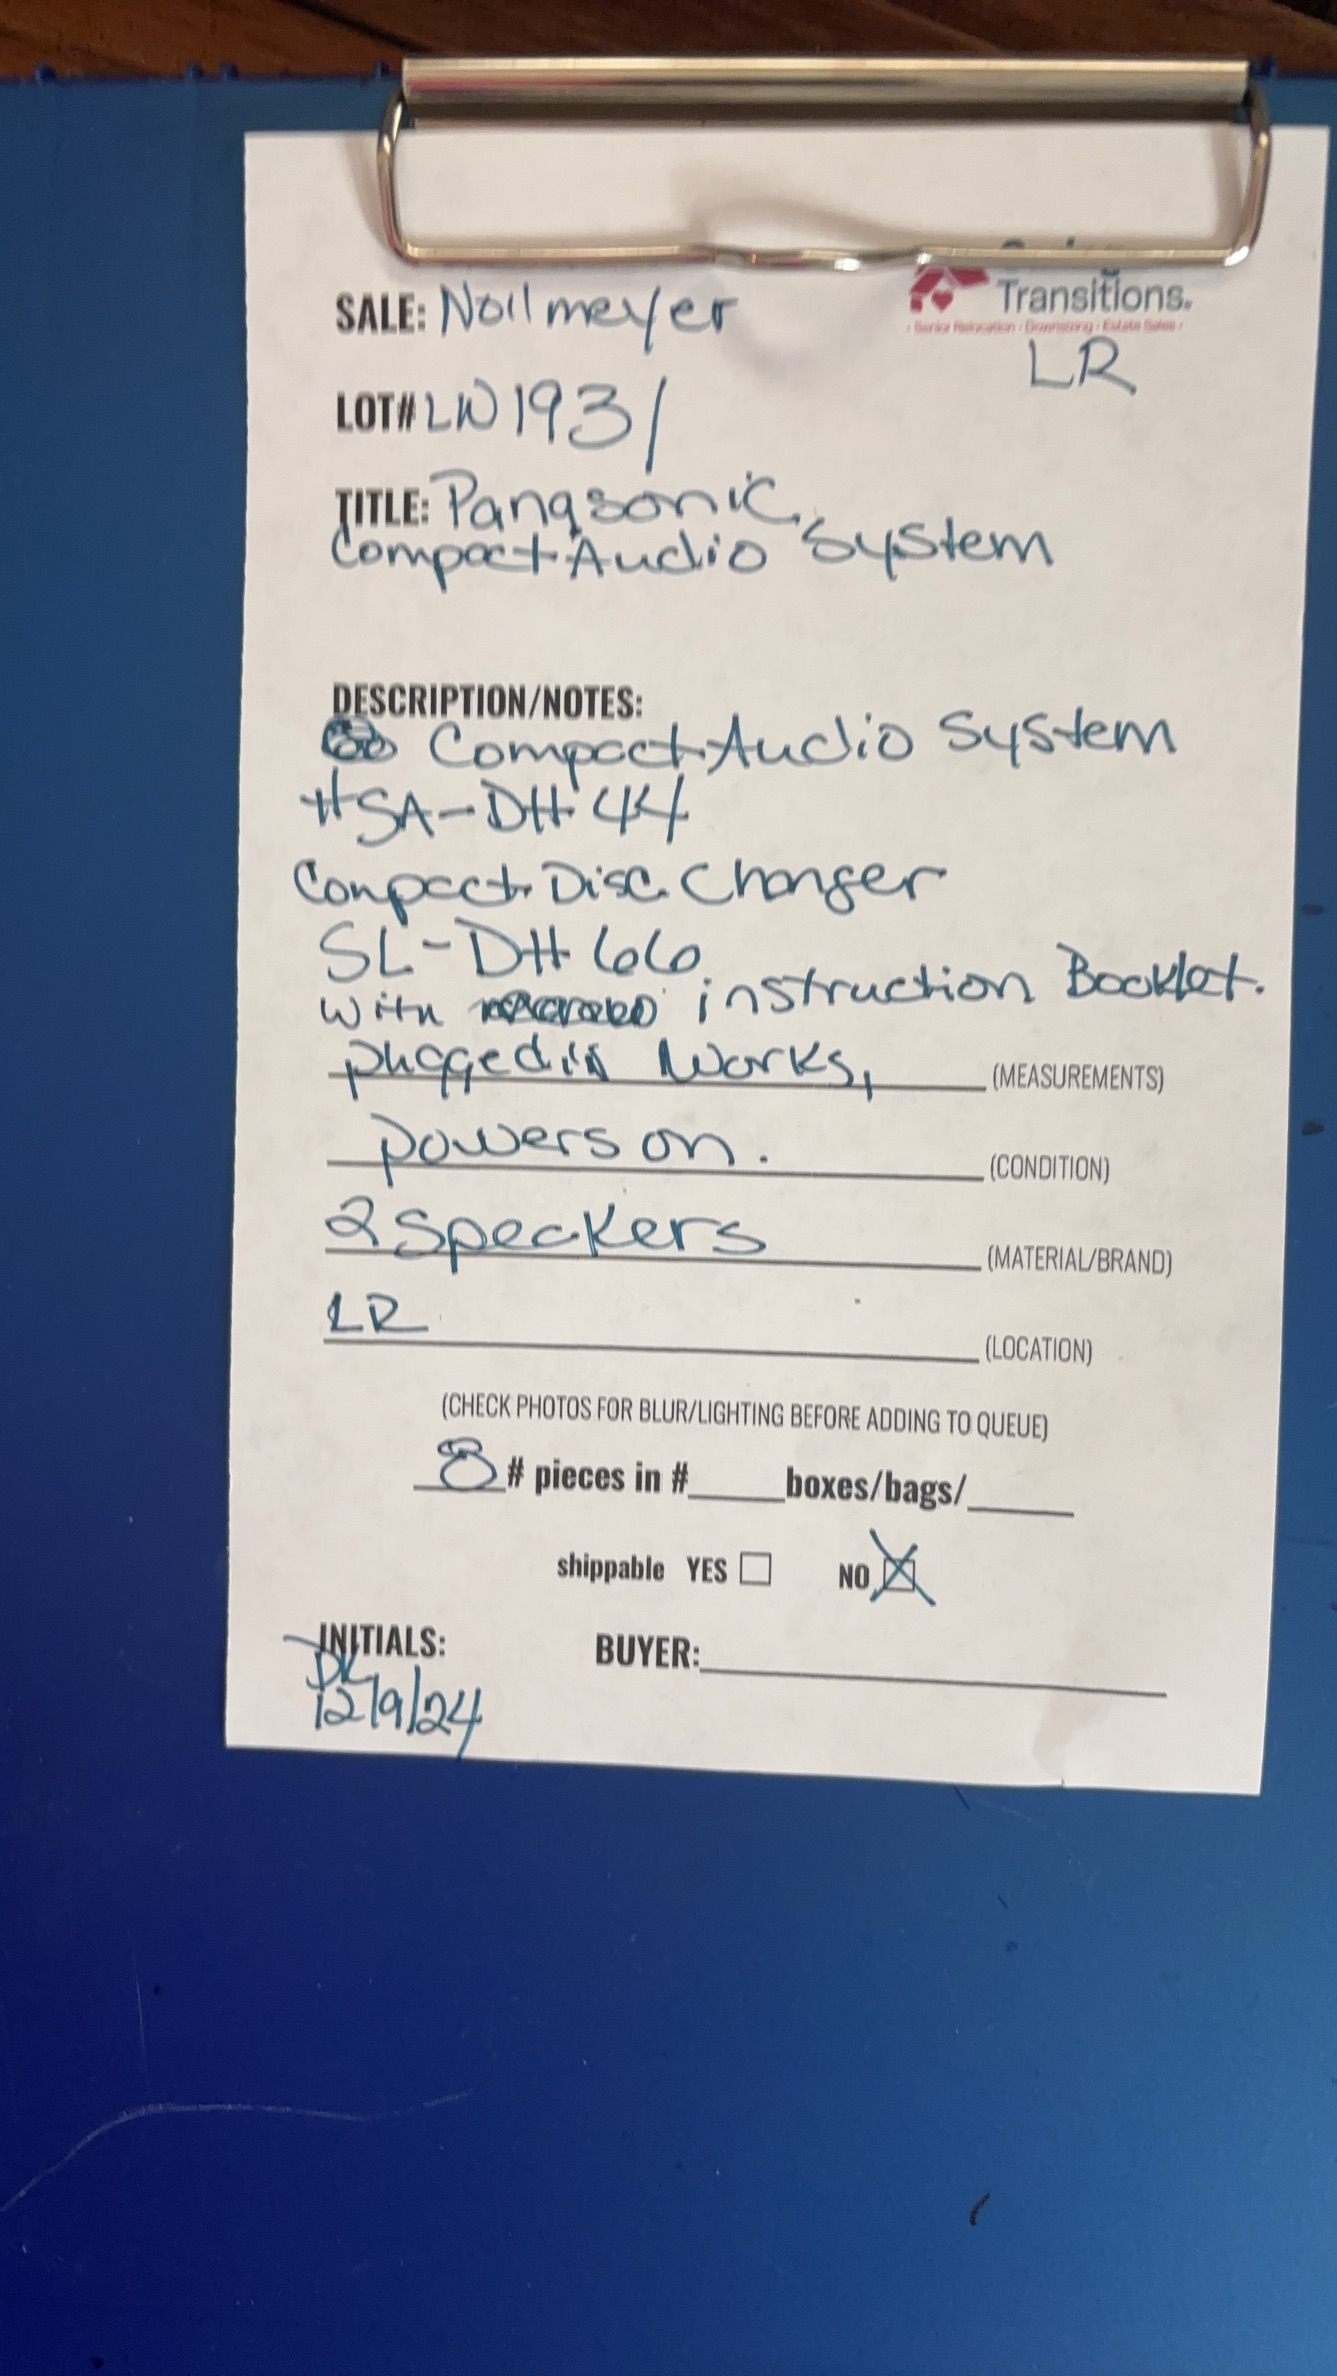 Transitions.
Senior Relocation · Downsizing · Estate Sales
LR
SALE: Nollmeyer
LOT# LW 1931
TITLE: Panasonic
Compact Audio System
DESCRIPTION/NOTES:
Compact Audio System
#SA-DH 44
Conpact Disc Changer
SL-DH 66
with instruction Booklet.
plugged in works, (MEASUREMENTS)
powers on. (CONDITION)
2 Speakers (MATERIAL/BRAND)
LR (LOCATION)
(CHECK PHOTOS FOR BLUR/LIGHTING BEFORE ADDING TO QUEUE)
8 # pieces in # boxes/bags/
shippable YES NO
INITIALS: BUYER:
DL
12/9/24